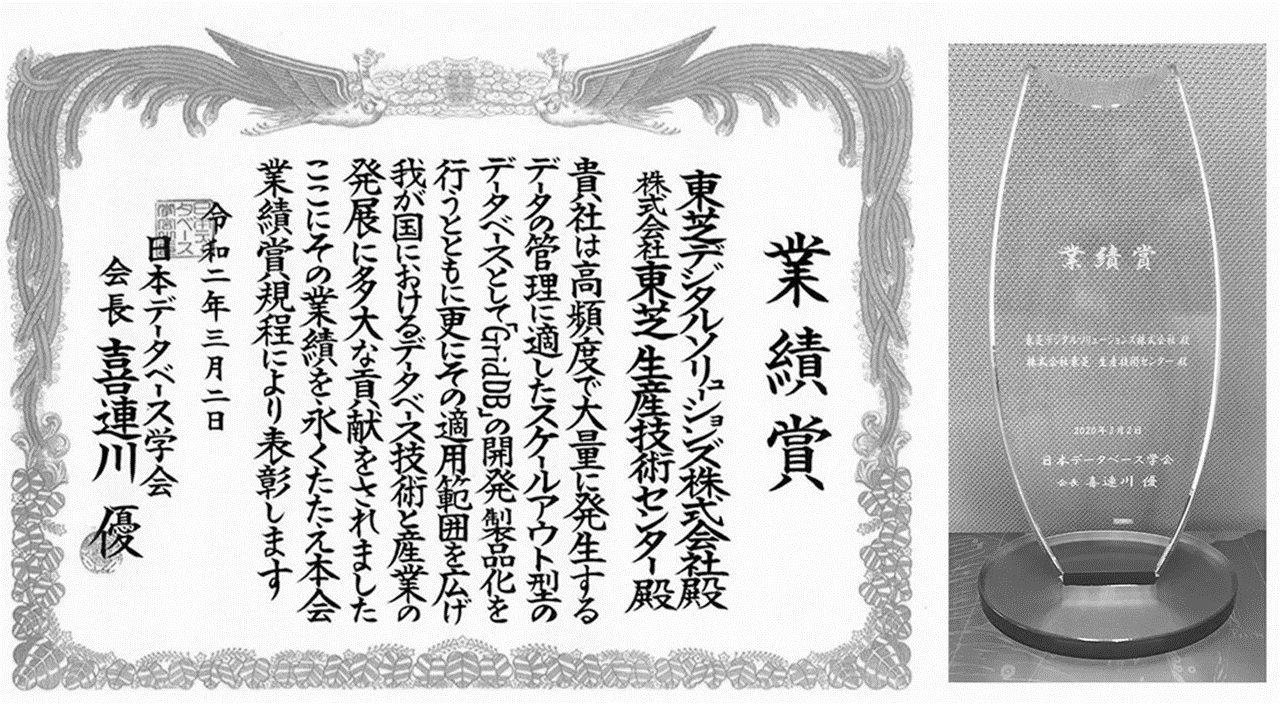 業績賞
東芝デジタルソリューションズ株式会社殿
株式会社東芝 生産技術センター殿
貴社は高頻度で大量に発生する
データの管理に適したスケールアウト型の
データベースとして「GridDB」の開発製品化を
行うとともに更にその適用範囲を広げ
我が国におけるデータベース技術と産業の
発展に多大な貢献をされました
ここにその業績を永くたたえ本会
業績賞規程により表彰します
令和二年三月二日
日本データベース学会
会長 喜連川 優
業績賞
東芝デジタルソリューションズ株式会社 殿
株式会社東芝 生産技術センター 殿
2020年3月2日
日本データベース学会
会長 喜連川 優